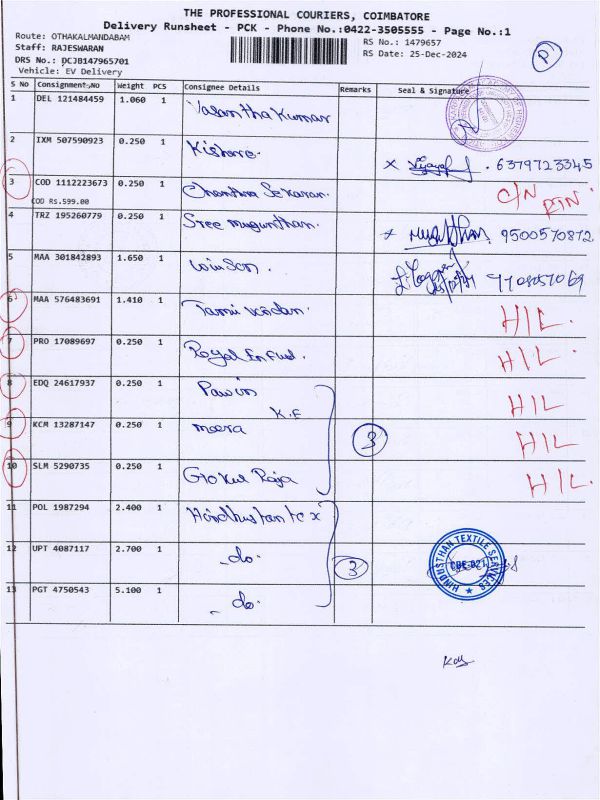 THE PROFESSIONAL COURIERS, COIMBATORE
Delivery Runsheet - PCK - Phone No.:0422-3505555 - Page No.:1
Route: OTHAKALMANDABAM
Staff: RAJESWARAN
DRS No.: DCJB147965701
Vehicle: EV Delivery
RS No.: 1479657
RS Date: 25-Dec-2024
P
S No Consignment No Weight PCS Consignee Details Remarks Seal & Signature
1 DEL 121484459 1.060 1 Vasantha Kumar
2 IXM 507590923 0.250 1 Kishore. 6379723345
3 COD 1112223673 0.250 1 Chanthra Sekaran. C/N
COD RS.599.00
4 TRZ 195260779 0.250 1 Sree mugunthan. 9500570872
5 MAA 301842893 1.650 1 Winson.
6 MAA 576483691 1.410 1 H/L.
7 PRO 17089697 0.250 1 Royal Enfied. H/L.
8 EDQ 24617937 0.250 1 Pawin H/L
K.F
9 KCM 13287147 0.250 1 meera 3 H/L
10 SLM 5290735 0.250 1 Gokul Raja H/L.
11 POL 1987294 2.400 1 Hindhustan tex
12 UPT 4087117 2.700 1 -do- 3 HINDUSTHAN TEXTILE SERVICES
CBE-021
13 PGT 4750543 5.100 1 -do-